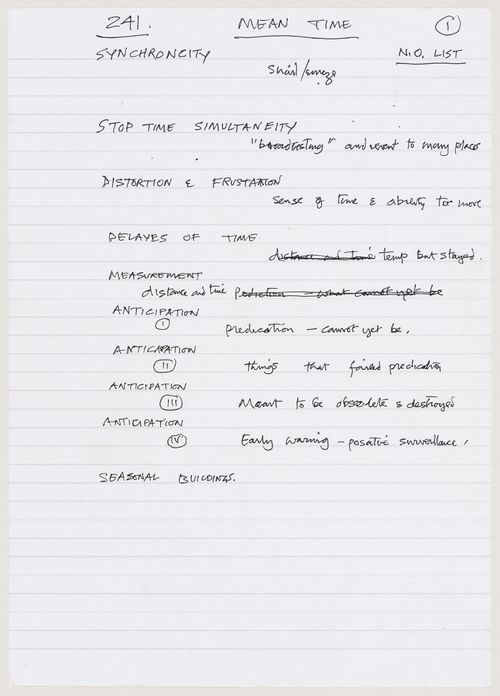 241. MEAN TIME 1
SYNCHRONCITY N.O. LIST
STOP TIME SIMULTANEITY
"broadcasting" and event to many places
DISTORTION & FRUSTATION
sense of time & ability to move
DELAYES OF TIME
distance and time temp but stayed.
MEASUREMENT
distance and time prediction - what cannot yet be
ANTICIPATION
I predication - cannot yet be.
ANTICIPATION
II things that foiled predication
ANTICIPATION
III Meant to be obsolete & destroyed
ANTICIPATION
IV Early warning - posative surveillance
SEASONAL BUILDINGS.